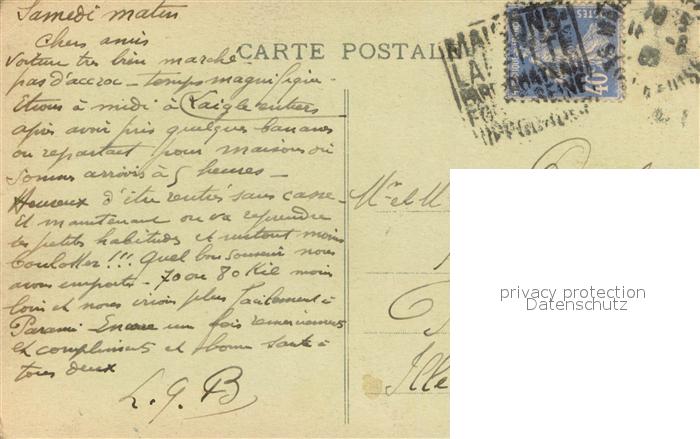 Samedi matin
Chers amis
Voiture très bien marché
pas d'accroc - temps magnifique.
Etions à midi à Laigle entiers
après avoir pris quelques bananes
on repartait pour maisons où
sommes arrivés à 5 heures -
Heureux d'être rentrés sans casse -
Et maintenant on va reprendre
les petites habitudes et surtout moins
boulotter !!! Quel bon souvenir nous
avons emporté - 70 ou 80 Kil moins
loin et nous irions plus facilement à
Paramé Encore une fois remerciements
et compliments et bonne santé à
tous deux
L. G. B
CARTE POSTALE
MAISONS
LA
SEINE
HIPPODROME
40
Mr et M
Ille
privacy protection
Datenschutz